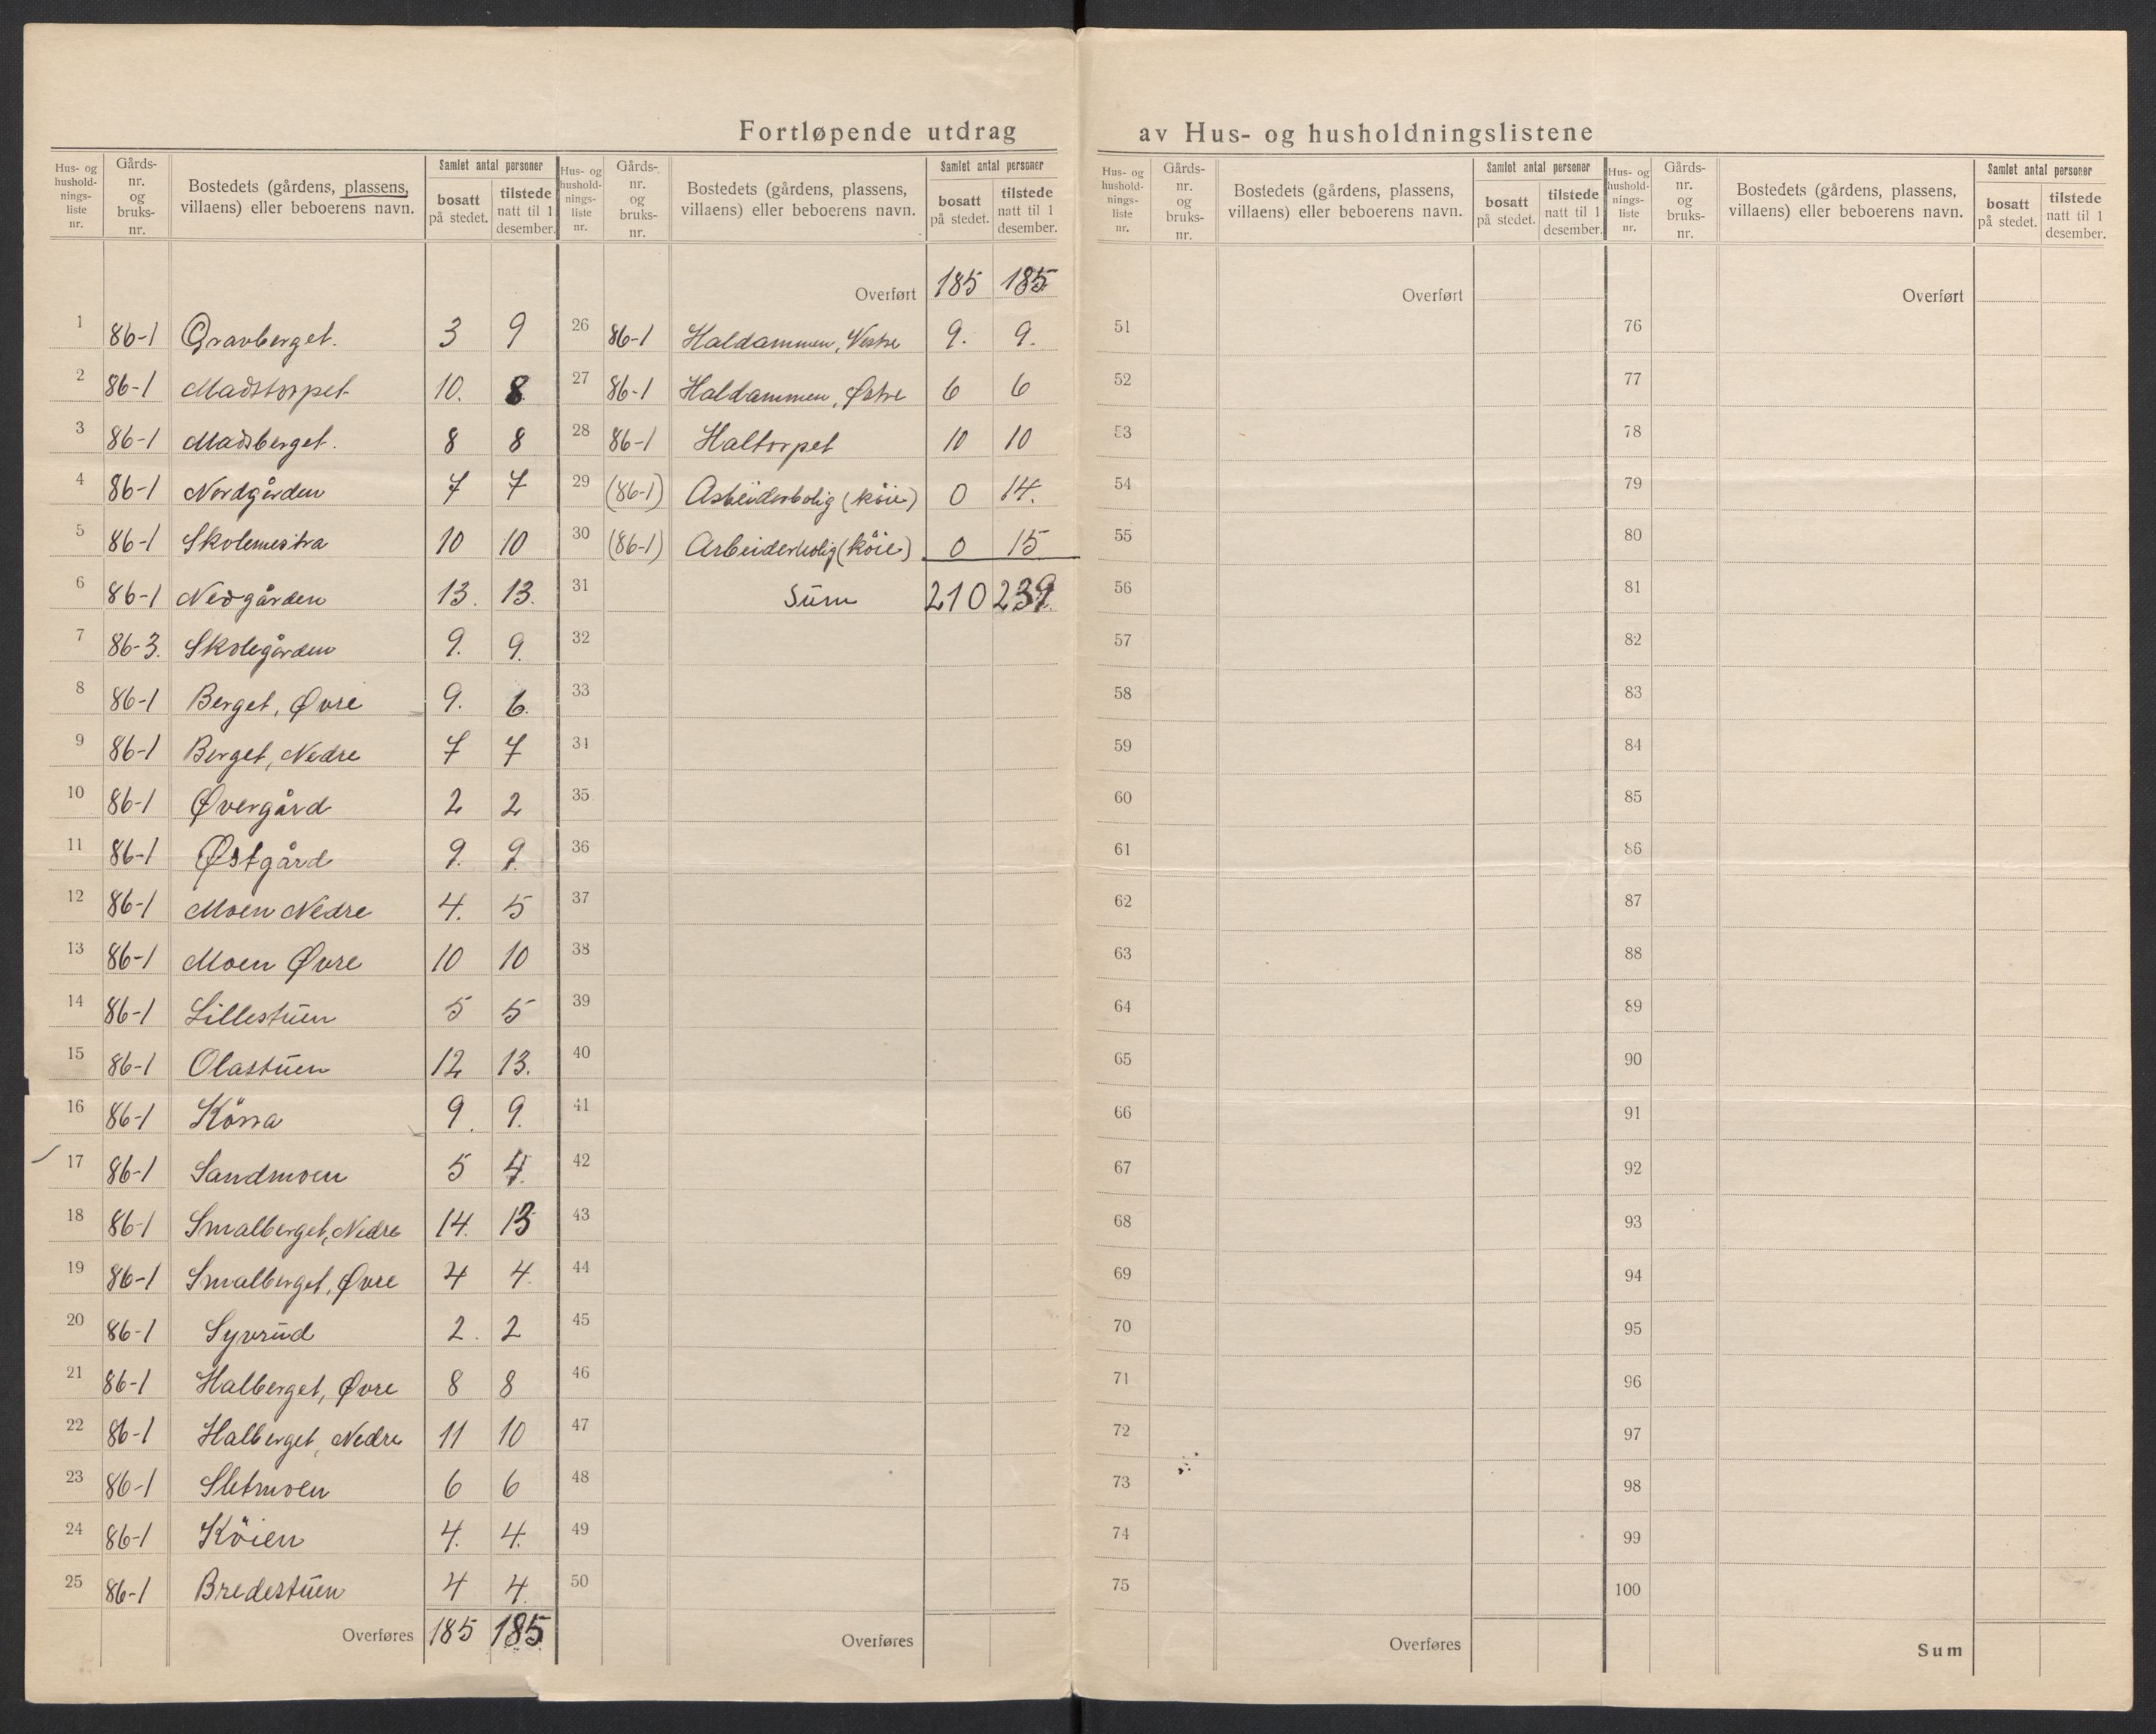 Fortløpende utdrag av Hus- og husholdningslistene
Hus- og hushold-nings-liste nr. | Gårds-nr. og bruks-nr. | Bostedets (gårdens, plassens, villaens) eller beboerens navn. | Samlet antal personer | bosatt på stedet. | tilstede natt til 1 desember.
1 86-1 Gravberget. 3 9
2 86-1 Madstorpet 10. 8
3 86-1 Madsberget. 8 8
4 86-1 Nordgården 7 7
5 86-1 Skolemestra 10 10
6 86-1 Nedgården 13. 13.
7 86-3. Skolegården 9. 9.
8 86-1 Berget, Øvre 9. 6.
9 86-1 Berget, Nedre 7 7
10 86-1 Øvergård 2 2
11 86-1 Østgård 9. 9.
12 86-1 Moen Nedre 4. 5
13 86-1 Moen Øvre 10 10
14 86-1 Lillestuen 5 5
15 86-1 Olastuen 12 13.
16 86-1 9. 9.
17 86-1 Sandmoen 5 4.
18 86-1 Smalberget, Nedre 14. 13
19 86-1 Smalberget, Øvre 4 4.
20 86-1 Syvrud 2. 2
21 86-1 Halberget, Øvre 8 8
22 86-1 Halberget, Nedre 11 10
23 86-1 Sletmoen 6 6
24 86-1 Köien 4. 4.
25 86-1 Bredestuen 4 4.
Overføres 185 185
Hus- og hushold-nings-liste nr. | Gårds-nr. og bruks-nr. | Bostedets (gårdens, plassens, villaens) eller beboerens navn. | Samlet antal personer | bosatt på stedet. | tilstede natt til 1 desember.
Overført 185 185
26 86-1 Haldammen, Vestre 9. 9.
27 86-1 Haldammen, Østre 6 6
28 86-1 Haltorpet 10 10
29 (86-1) Arbeiderbolig (köie) 0 14.
30 (86-1) Arbeiderbolig (köie) 0 15
31 Sum 210 239.
32
33
34
35
36
37
38
39
40
41
42
43
44
45
46
47
48
49
50
Overføres
Hus- og hushold-nings-liste nr. | Gårds-nr. og bruks-nr. | Bostedets (gårdens, plassens, villaens) eller beboerens navn. | Samlet antal personer | bosatt på stedet. | tilstede natt til 1 desember.
Overført
51
52
53
54
55
56
57
58
59
60
61
62
63
64
65
66
67
68
69
70
71
72
73
74
75
Overføres
Hus- og hushold-nings-liste nr. | Gårds-nr. og bruks-nr. | Bostedets (gårdens, plassens, villaens) eller beboerens navn. | Samlet antal personer | bosatt på stedet. | tilstede natt til 1 desember.
Overført
76
77
78
79
80
81
82
83
84
85
86
87
88
89
90
91
92
93
94
95
96
97
98
99
100
Sum